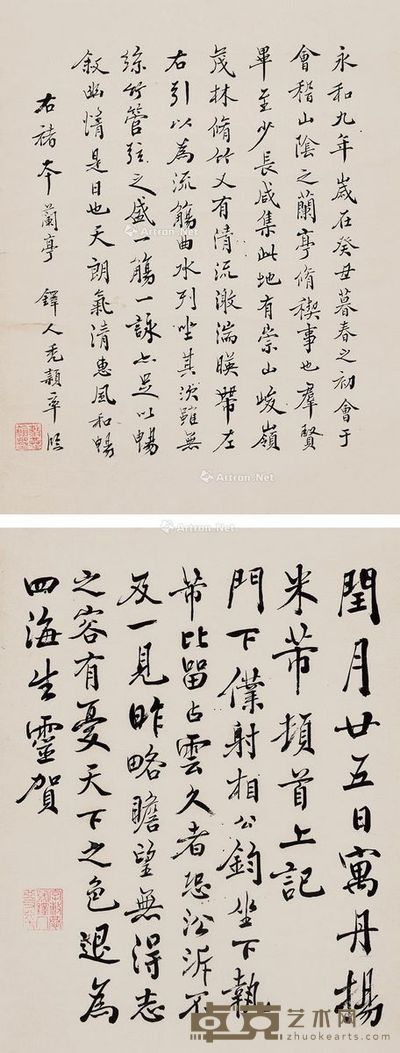 永和九年歲在癸丑暮春之初會于
會稽山陰之蘭亭脩禊事也羣賢
畢至少長咸集此地有崇山峻嶺
茂林脩竹又有清流激湍暎帶左
右引以為流觴曲水列坐其次雖無
絲竹管弦之盛一觴一詠亦足以暢
敘幽情是日也天朗氣清惠風和暢
右褚本蘭亭 鐸人禿穎率臨
Artron.Net
Artron.Net
Artron.Net
閏月廿五日寓丹楊
米芾頓首上記
門下僕射相公鈞坐下執
芾比留占雲久者恐沿泝不
及一見昨略瞻望無得志
之容有憂天下之色退為
四海生靈賀
Artron.Net
卓克艺术网
www.zhuokearts.com